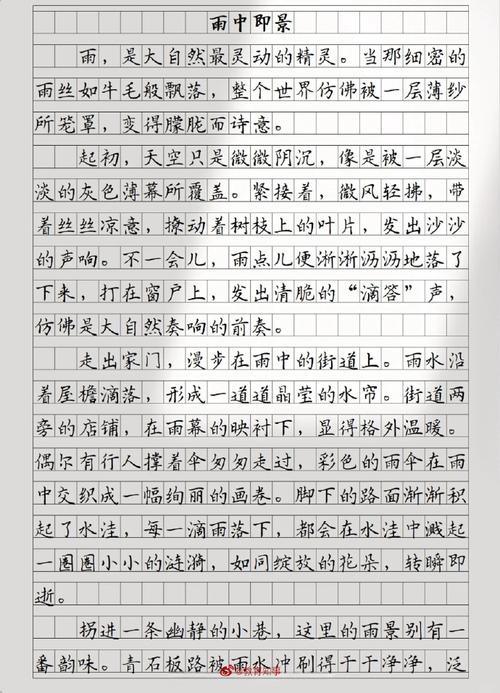 雨中即景
雨，是大自然最灵动的精灵。当那细密的
雨丝如牛毛般飘落，整个世界仿佛被一层薄纱
所笼罩，变得朦胧而诗意。
起初，天空只是微微阴沉，像是被一层淡
淡的灰色薄幕所覆盖。紧接着，微风轻拂，带
着丝丝凉意，撩动着树枝上的叶片，发出沙沙
的声响。不一会儿，雨点儿便淅淅沥沥地落了
下来，打在窗户上，发出清脆的“滴答”声，
仿佛是大自然奏响的前奏。
走出家门，漫步在雨中的街道上。雨水沿
着屋檐滴落，形成一道道晶莹的水帘。街道两
旁的店铺，在雨幕的映衬下，显得格外温暖。
偶尔有行人撑着伞匆匆走过，彩色的雨伞在雨
中交织成一幅绚丽的画卷。脚下的路面渐渐积
起了水洼，每一滴雨落下，都会在水洼中溅起
一圈圈小小的涟漪，如同绽放的花朵，转瞬即
逝。
拐进一条幽静的小巷，这里的雨景别有一
番韵味。青石板路被雨水冲刷得干干净净，泛